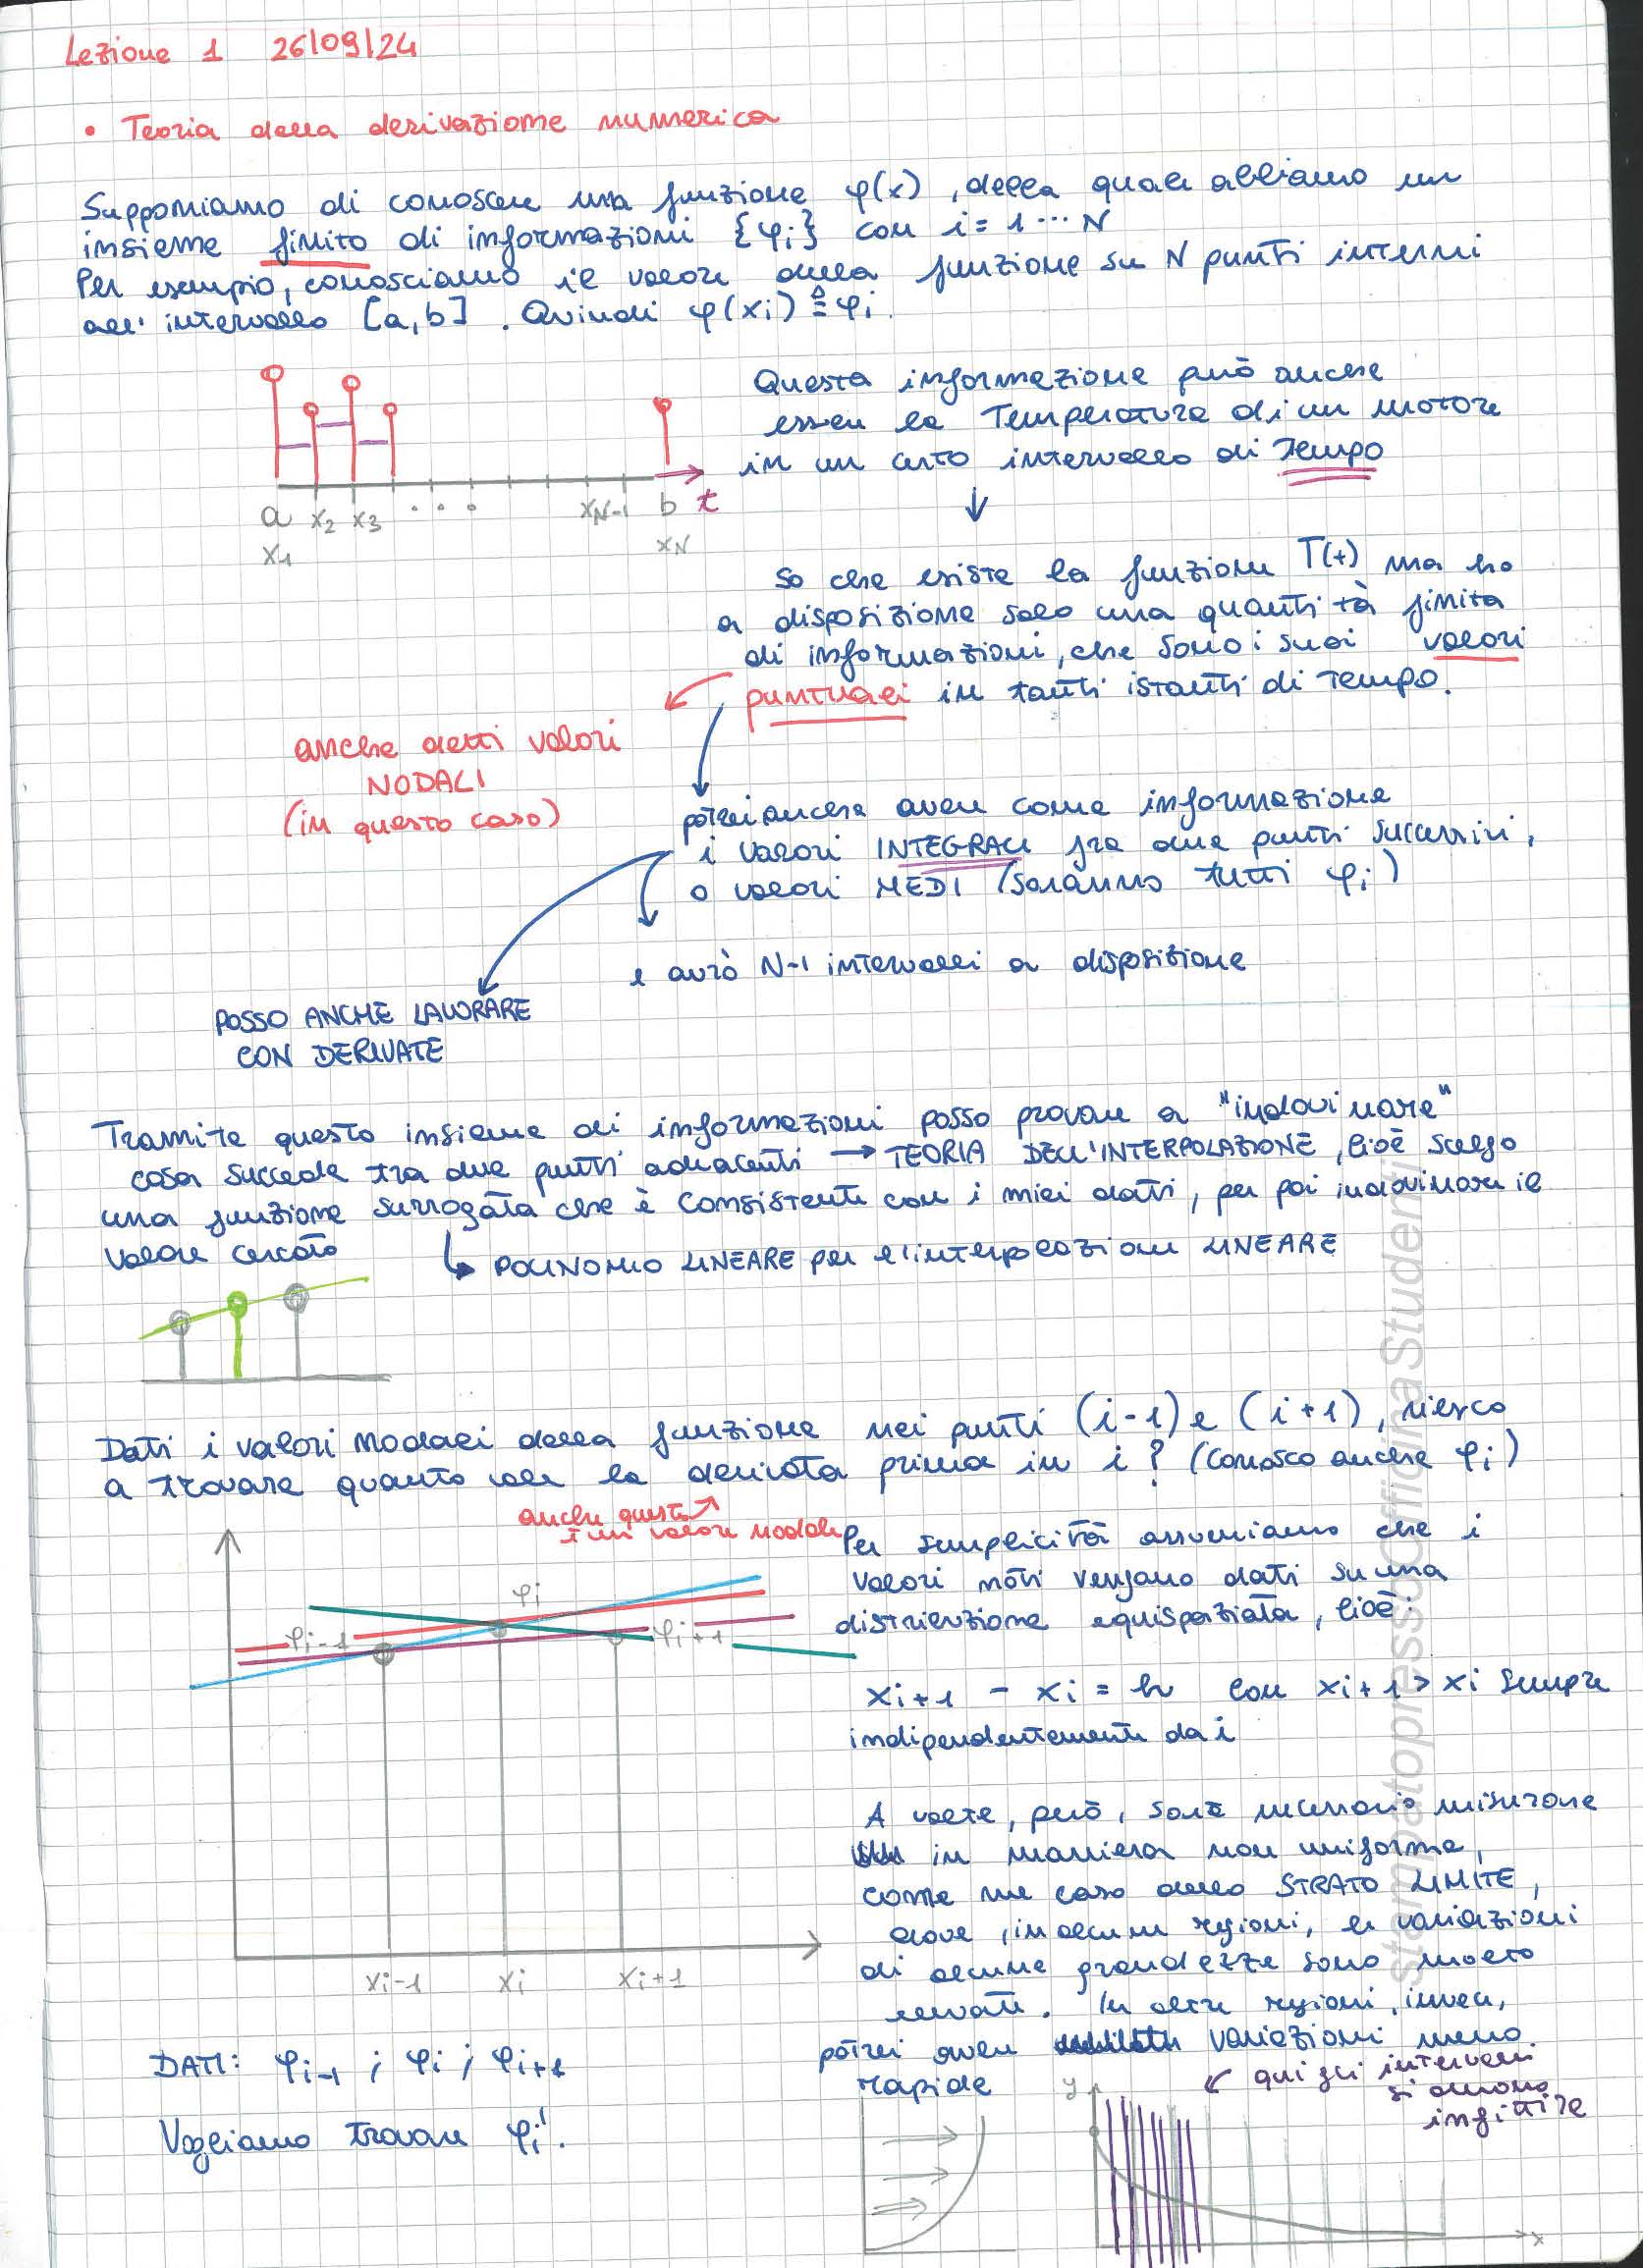 Lezione 1 26/09/24
• Teoria della derivazione numerica
Supponiamo di conoscere una funzione φ(x), della quale abbiamo un
insieme finito di informazioni {φi} con i = 1 ... N
Per esempio, conosciamo il valore della funzione su N punti interni
all'intervallo [a,b]. Quindi φ(xi) ≜ φi.
Questa informazione può anche
essere la Temperatura di un motore
in un certo intervallo di Tempo
a x2 x3 . . . xN-1 b t
x1 xN
So che esiste la funzione T(t) ma ho
a disposizione solo una quantità finita
di informazioni, che sono i suoi valori
puntuali in tanti istanti di Tempo.
anche detti valori
NODALI
(in questo caso)
potrei anche avere come informazione
i valori INTEGRALI fra due punti successivi,
o valori MEDI (saranno tutti φi)
e avrò N-1 intervalli a disposizione
POSSO ANCHE LAVORARE
CON DERIVATE
Tramite questo insieme di informazioni posso provare a "indovinare"
cosa succede tra due punti adiacenti → TEORIA DELL'INTERPOLAZIONE, cioè scelgo
una funzione surrogata che è consistente con i miei dati, per poi indovinare il
valore cercato
↳ POLINOMIO LINEARE per l'interpolazione LINEARE
Dati i valori nodali della funzione nei punti (i-1) e (i+1), riesco
a trovare quanto vale la derivata prima in i? (conosco anche φi)
anche questo
è un valore nodale
Per semplicità assumiamo che i
valori noti vengano dati su una
distribuzione equispaziata, cioè:
φi
φi-1
φi+1
xi+1 - xi = h con xi+1 > xi sempre
indipendentemente da i
A volte, però, sarà necessario misurare
in maniera non uniforme,
come nel caso dello STRATO LIMITE,
dove, in alcune regioni, le variazioni
di alcune grandezze sono molto
elevate. In altre regioni, invece,
potrei avere variazioni meno
rapide
xi-1 xi xi+1
DATI: φi-1 ; φi ; φi+1
Vogliamo trovare φi'.
qui gli intervalli
si devono
infittire
y
x
stampatopressoOfficinaStudenti